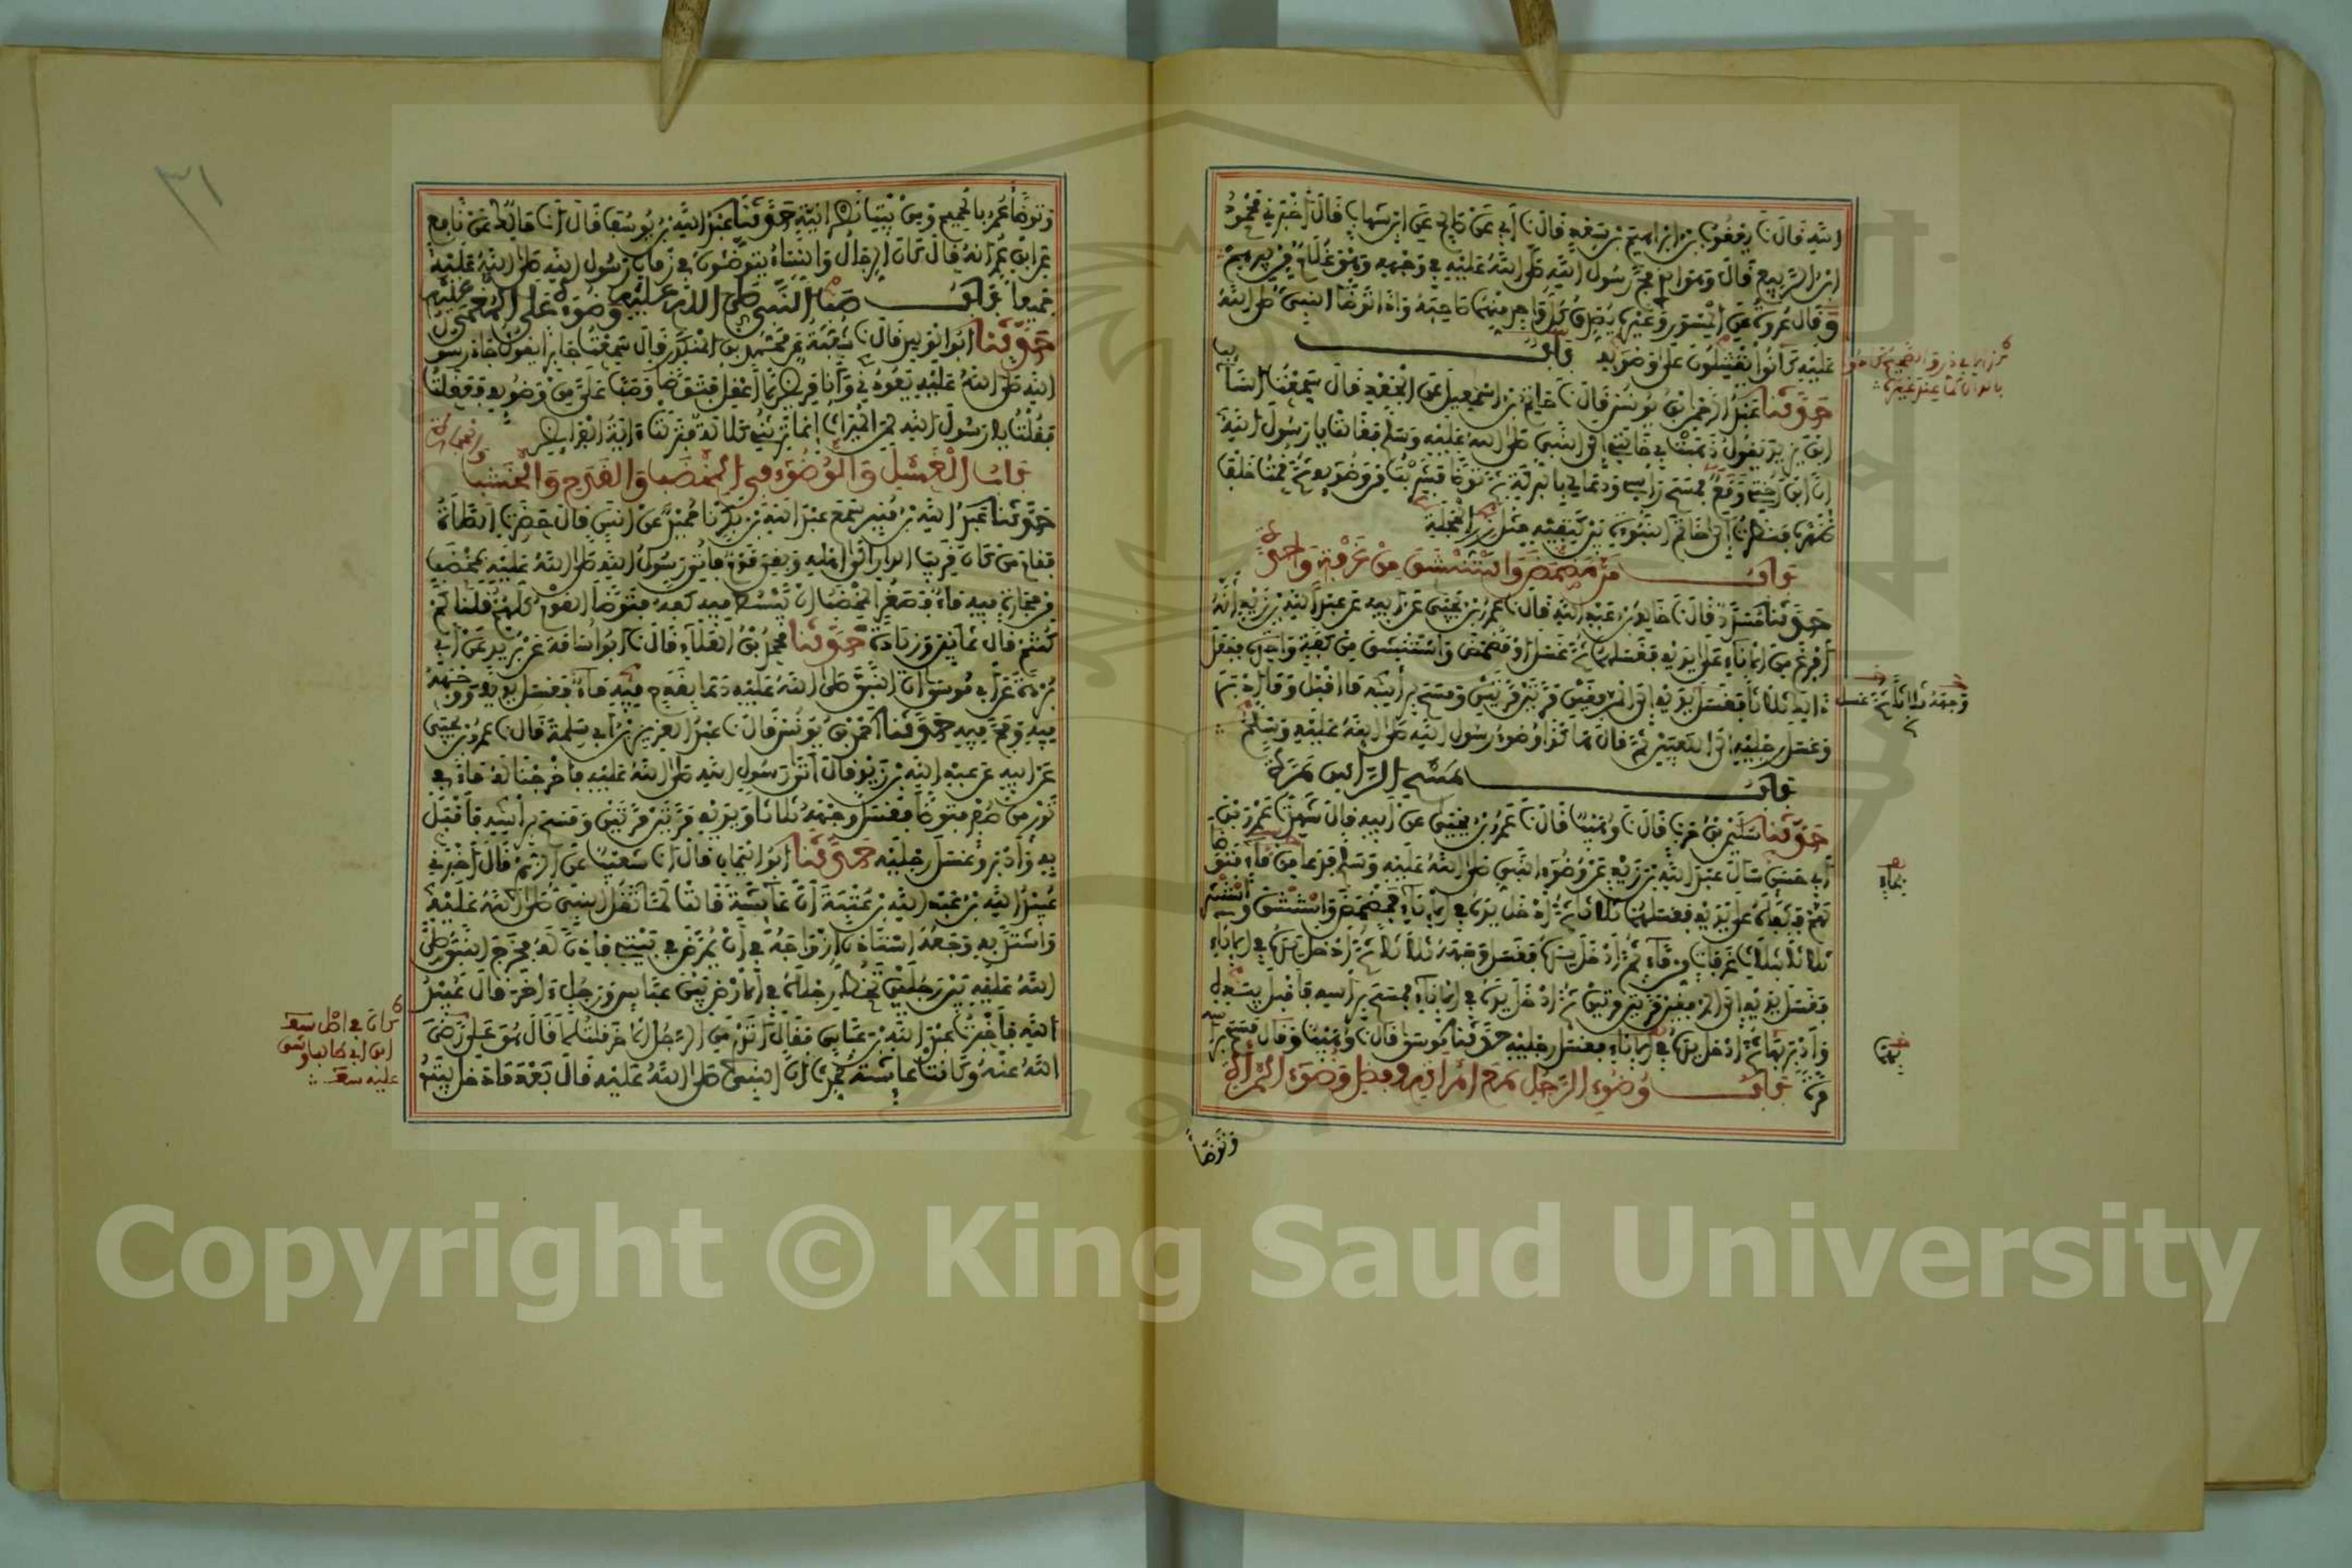 الله قال نا يعقوب بن ابراهيم بن سعد قال نا أبي عن صالح عن ابن شهاب قال أخبرني محمود
ابن الربيع قال وهو الذي مج رسول الله صلى الله عليه في وجهه وهو غلام من بيرهم
وقال عروة عن المسور وغيره يصدق كل واحد منهما صاحبه وإذا توضأ النبي صلى الله
عليه كانوا يقتتلون على وضوءه باب
حدثنا عبد الرحمن بن يونس قال نا حاتم بن اسمعيل عن الجعد قال سمعت السائب
ابن يزيد يقول ذهبت بي خالتي إلى النبي صلى الله عليه وسلم فقالت يا رسول الله
إن ابن أختي وقع فمسح رأسي ودعا لي بالبركة ثم توضأ فشربت من وضوءه ثم قمت خلف
ظهره فنظرت إلى خاتم النبوة بين كتفيه مثل زر الحجلة
باب من مضمض واستنشق من غرفة واحدة
حدثنا مسدد قال نا خالد بن عبد الله قال نا عمرو بن يحيى عن أبيه عن عبد الله بن زيد أنه
أفرغ من الإناء على يديه فغسلهما ثم غسل أو مضمض واستنشق من كفة واحدة ففعل
ذلك ثلاثا فغسل يديه إلى المرفقين مرتين مرتين ومسح برأسه ما أقبل وما أدبر
وغسل رجليه إلى الكعبين ثم قال هكذا وضوء رسول الله صلى الله عليه وسلم
وجهه ثلاثا ثم غسل
باب مسح الرأس مرة
حدثنا سليمن بن حرب قال نا وهيب قال نا عمرو بن يحيى عن أبيه قال شهدت عمرو بن
أبي حسن سأل عبد الله بن زيد عن وضوء النبي صلى الله عليه وسلم فدعا من ماء فتوضأ
لهم فكفأه على يديه فغسلهما ثلاثا ثم أدخل يده في الإناء فمضمض واستنشق واستنثر
ثلاثا بثلاث غرفات من ماء ثم أدخل يده فغسل وجهه ثلاثا ثم أدخل يده في الإناء
فغسل يديه إلى المرفقين مرتين مرتين ثم أدخل يده في الإناء فمسح برأسه فأقبل بيديه
وأدبر بهما ثم أدخل يده في الإناء فغسل رجليه حدثنا موسى قال نا وهيب وقال مسح برأسه
مرة باب وضوء الرجل مع امرأته وفضل وضوء المرأة
بماء
وتوضأ
٣١
وتوضأ عمر بالحميم ومن بيت نصرانية حدثنا عبد الله بن يوسف قال أنا مالك عن نافع
عن ابن عمر أنه قال كان الرجال والنساء يتوضئون في زمان رسول الله صلى الله عليه
جميعا باب صب النبي صلى الله عليه وضوءه على المغمى عليه
حدثنا أبو الوليد قال نا شعبة عن محمد بن المنكدر قال سمعت جابرا يقول جاء رسول
الله صلى الله عليه يعودني وأنا مريض لا أعقل فتوضأ وصب علي من وضوءه فعقلت
فقلت يا رسول الله لمن الميراث إنما يرثني كلالة فنزلت آية الفرائض
باب الغسل والوضوء في المخضب والقدح والخشب والحجارة
حدثنا عبد الله بن منير سمع عبد الله بن بكر نا حميد عن أنس قال حضرت الصلاة
فقام من كان قريب الدار إلى أهله وبقي قوم فأتي رسول الله صلى الله عليه بمخضب
من حجارة فيه ماء فصغر المخضب أن يبسط فيه كفه فتوضأ القوم كلهم قلنا كم
كنتم قال ثمانين وزيادة حدثنا محمد بن العلاء قال نا أبو أسامة عن بريد عن أبي
بردة عن أبي موسى أن النبي صلى الله عليه دعا بقدح فيه ماء فغسل يديه ووجهه
فيه ومج فيه حدثنا أحمد بن يونس قال نا عبد العزيز بن أبي سلمة قال نا عمرو بن يحيى
عن أبيه عن عبد الله بن زيد قال أتى رسول الله صلى الله عليه فأخرجنا له ماء في
تور من صفر فتوضأ فغسل وجهه ثلاثا ويديه مرتين مرتين ومسح برأسه فأقبل
به وأدبر وغسل رجليه حدثنا أبو اليمان قال أنا شعيب عن الزهري قال أخبرني
عبيد الله بن عبد الله بن عتبة أن عائشة قالت لما ثقل النبي صلى الله عليه
واشتد به وجعه استأذن أزواجه في أن يمرض في بيتي فأذن له فخرج النبي صلى
الله عليه بين رجلين تخط رجلاه في الأرض بين عباس ورجل آخر قال عبيد
الله فأخبرت عبد الله بن عباس فقال أتدري من الرجل الآخر قلت لا قال هو علي رضي
الله عنه وكانت عائشة تحدث أن النبي صلى الله عليه قال بعد ما دخل بيته
Copyright © King Saud University
1957